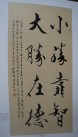 小勝靠智
大勝在德